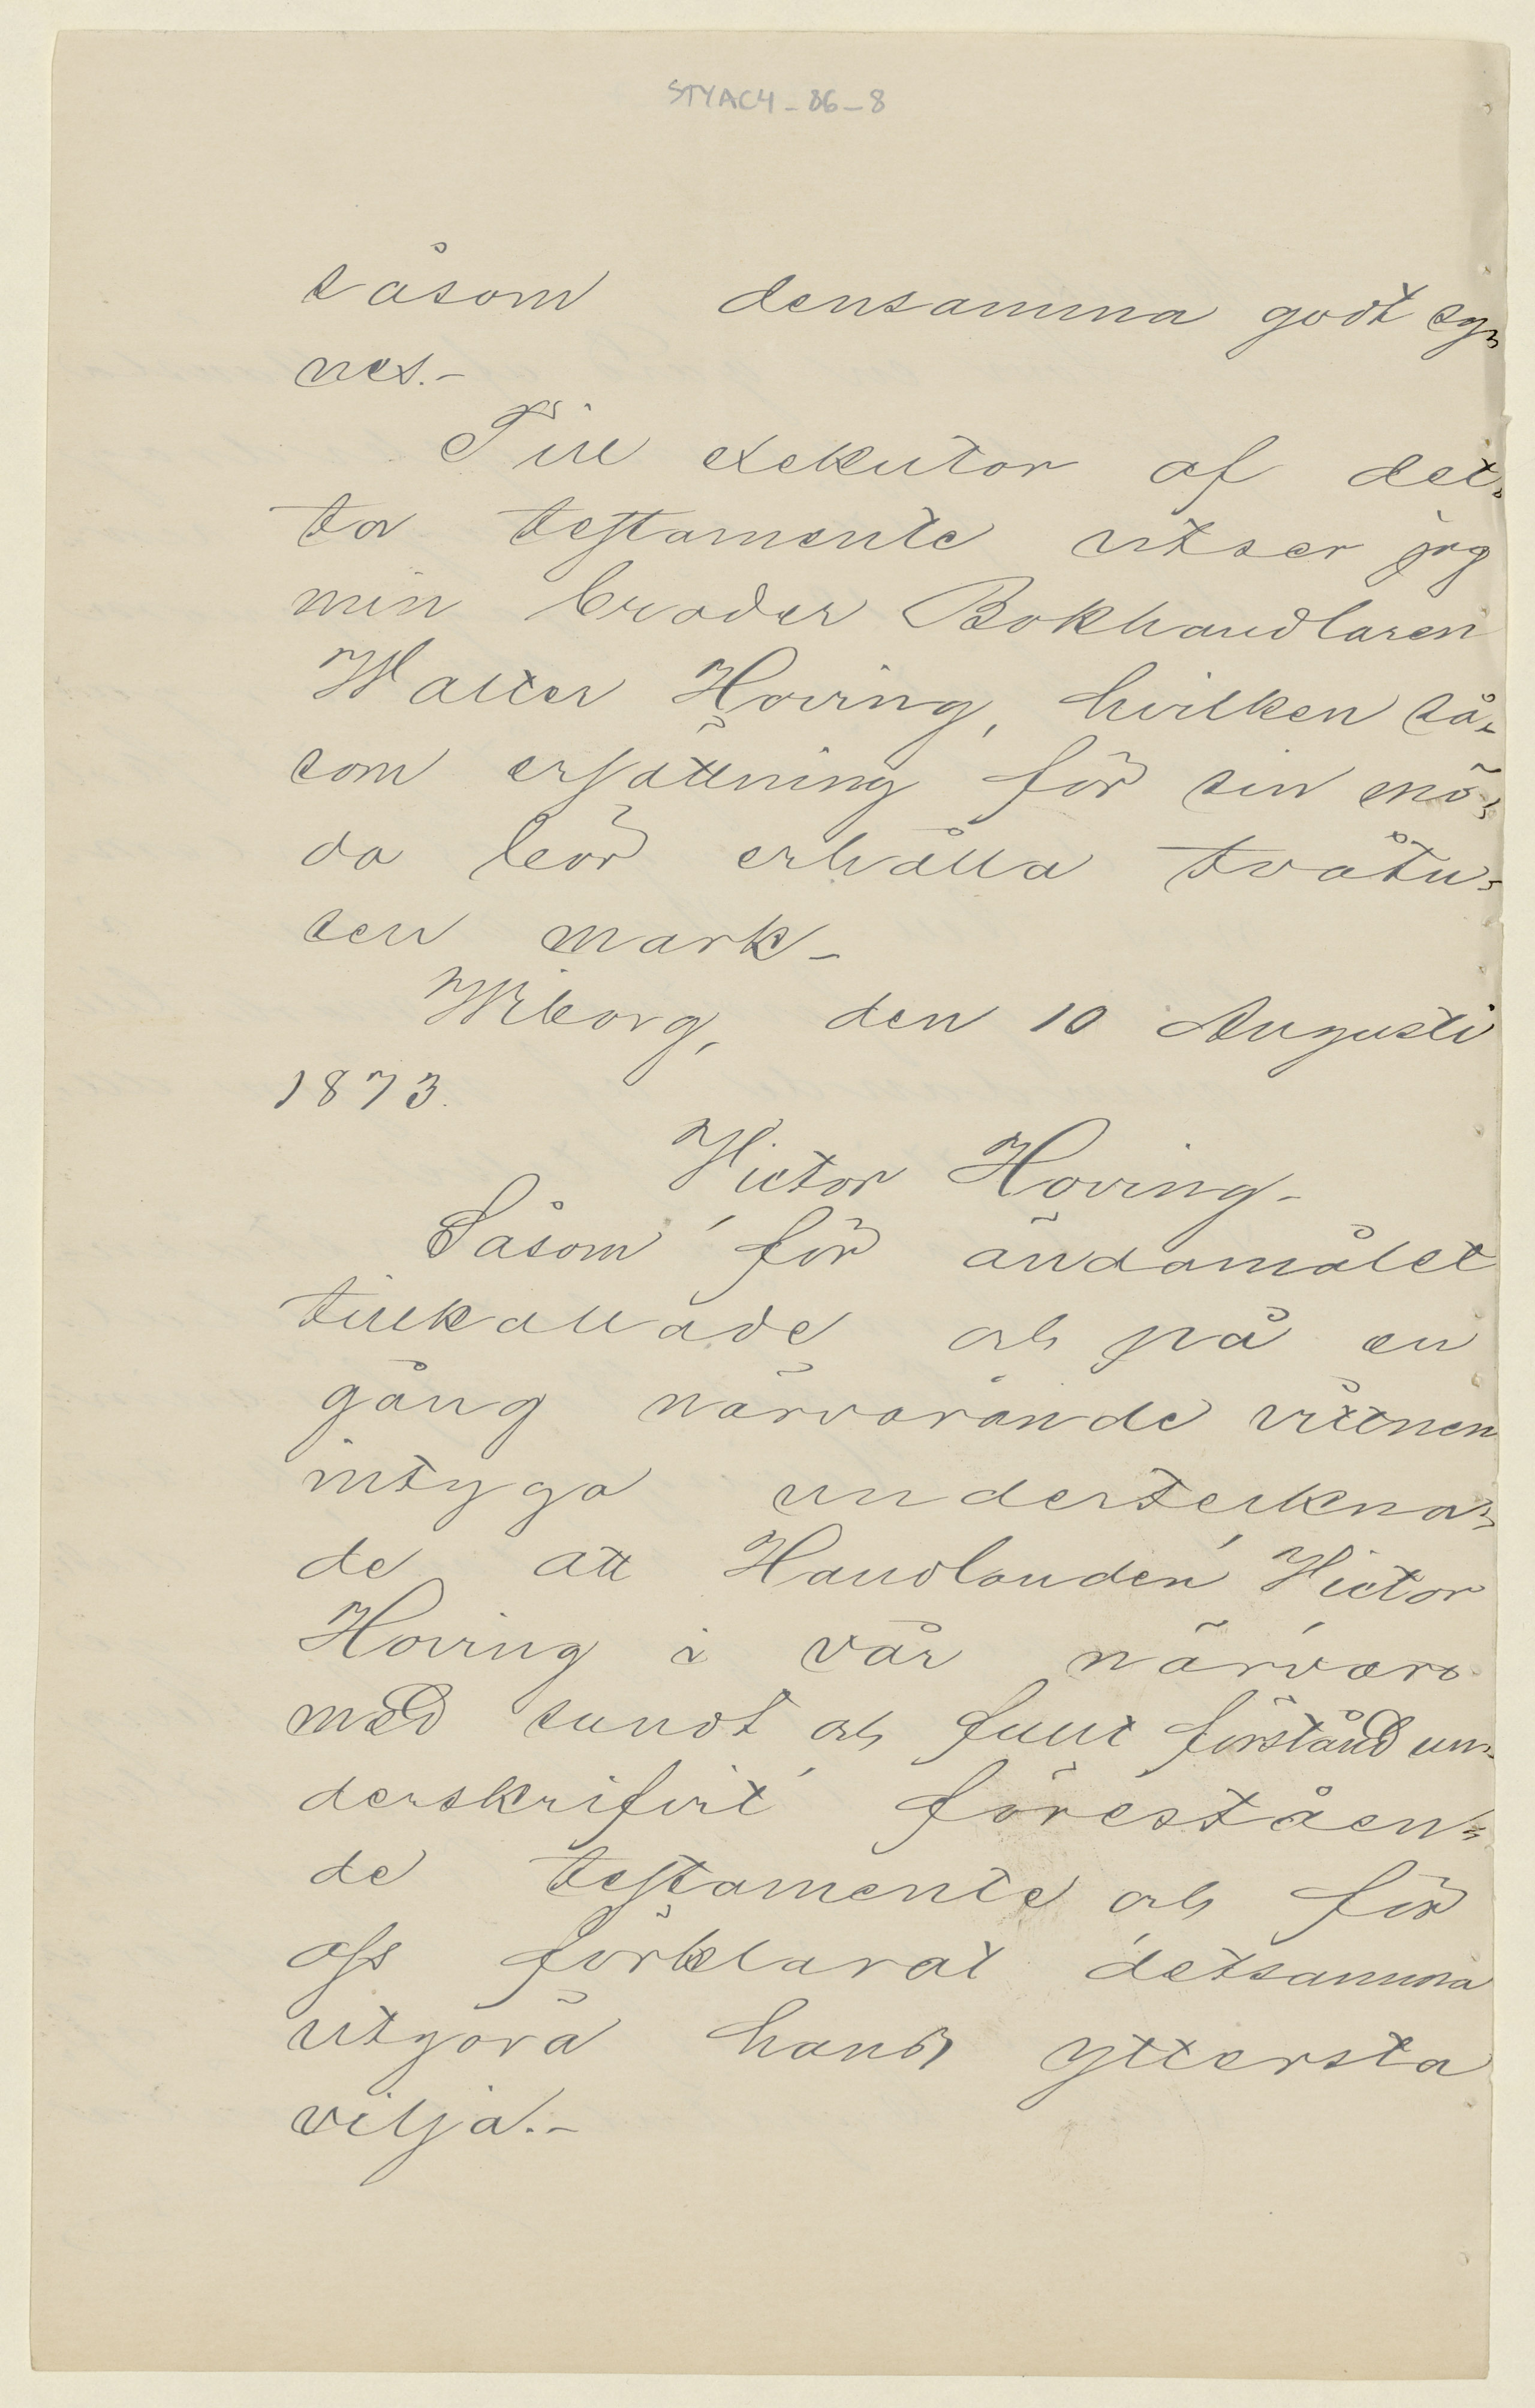 STYAC4-86-8
såsom densamma godt sy-
nes.-
Till exekutor af det-
ta testamente utser jag
min broder Bokhandlaren
Walter Hoving, hvilken så-
som ersättning för sin mö-
da bör erhålla tvåtu-
sen mark-
Wiborg, den 10 Augusti
1873.
Victor Hoving-
Såsom för ändamålet
tillkallade och på en
gång närvarande vittnen
intyga underteckna-
de att Handlanden Victor
Hoving i vår närvaro
med sundt och fullt förstånd un-
derskrifvit föreståen-
de testamente och för
oss förklarat detsamma
utgöra hans yttersta
vilja.-